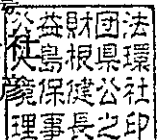 益財団法
島根県環
保健公社
理事長之印
彦